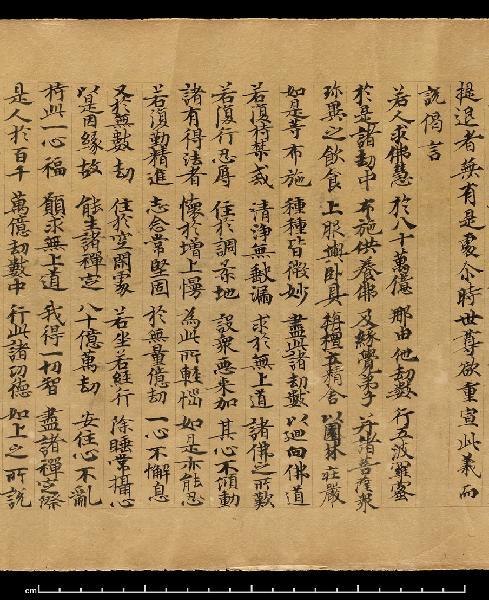 提退者無有是處尒時世尊欲重宣此義而
說偈言
若人求佛慧 於八十萬億 那由他劫數 行五波羅蜜
於是諸劫中 布施供養佛 及緣覺弟子 并諸菩薩衆
珎異之飲食 上服與卧具 栴檀立精舍 以園林莊嚴
如是等布施 種種皆微妙 盡此諸劫數 以迴向佛道
若復持禁戒 清淨無缺漏 求於無上道 諸佛之所歎
若復行忍辱 住於調柔地 設衆惡來加 其心不傾動
諸有得法者 懷於增上慢 為此所輕惱 如是亦能忍
若復懃精進 志念常堅固 於無量億劫 一心不懈息
又於無數劫 住於空閑處 若坐若經行 除睡常攝心
以是因緣故 能生諸禪定 八十億萬劫 安住心不亂
持此一心福 願求無上道 我得一切智 盡諸禪定際
是人於百千 萬億劫數中 行此諸功德 如上之所說
cm